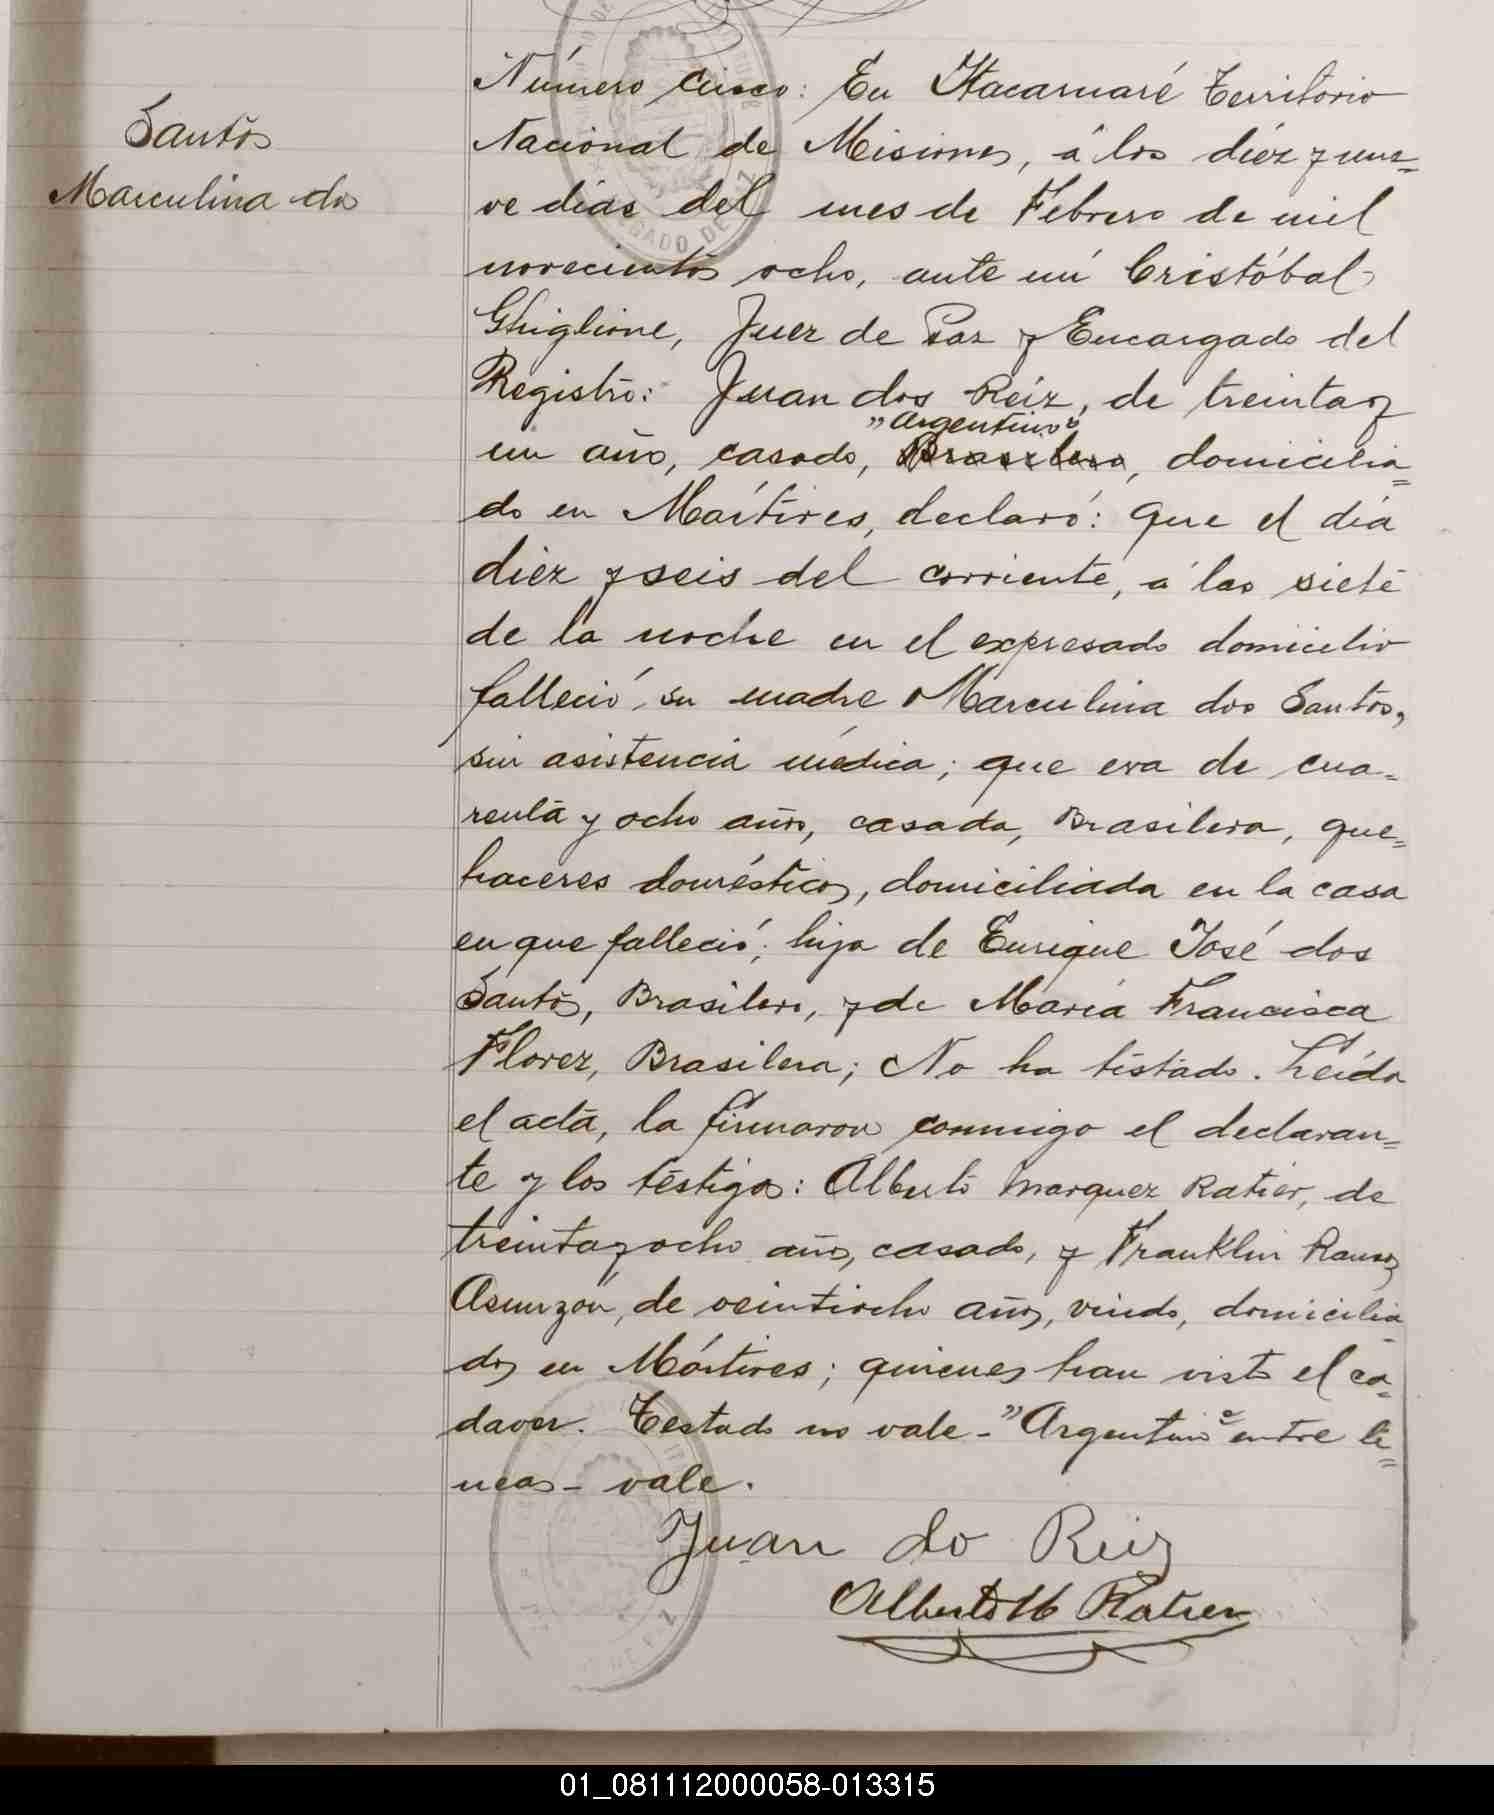 Santos
Marculina dos
Número cinco: En Itacaruaré Territorio
Nacional de Misiones, á los diez y nue=
ve dias del mes de Febrero de mil
novecientos ocho, ante mí Cristóbal
Ghiglione, Juez de Paz y Encargado del
Registro: Juan dos Reiz, de treinta y
"Argentino"
un año, casado, Brasilero, domicilia=
do en Mártires, declaró: que el día
diez y seis del corriente, á las siete
de la noche en el expresado domicilio
falleció su madre Marculina dos Santos,
sin asistencia médica; que era de cua=
renta y ocho años, casada, Brasilera, que=
haceres domésticos, domiciliada en la casa
en que falleció; hija de Enrique José dos
Santos, Brasilero, y de María Francisca
Florez, Brasilera; No ha testado. Leída
el acta, la firmaron conmigo el declaran=
te y los testigos: Alberto Marquez Ratier, de
treinta y ocho años, casado, y Franklin Ramos
Asunzon, de veintiocho años, viudo, domicilia=
dos en Mártires; quienes han visto el ca=
daver. Testado no vale - "Argentino" entre li=
neas - vale.
Juan do Reiz
Alberto M Ratier
01_081112000058-013315